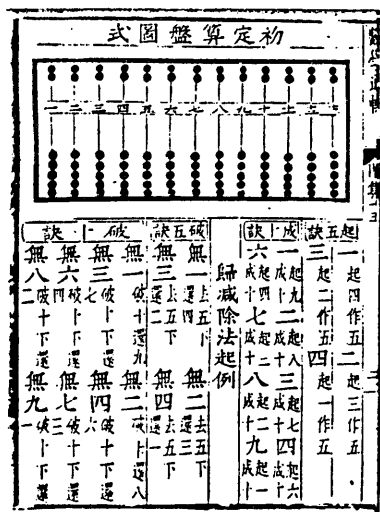 初定算盤圖式
起五訣
一起四作五二起三作五
三起二作五四起一作五
成十訣
一起九成十二起八成十三起七成十四起六成十
六起四成十七起三成十八起二成十九起一成十
歸減除法起例
破五訣
無一去五下還四無二去五下還三
無三去五下還二無四去五下還一
破十訣
無一破十下還九無二破十下還八
無三破十下還七無四破十下還六
無六破十下還四無七破十下還三
無八破十下還二無九破十下還一